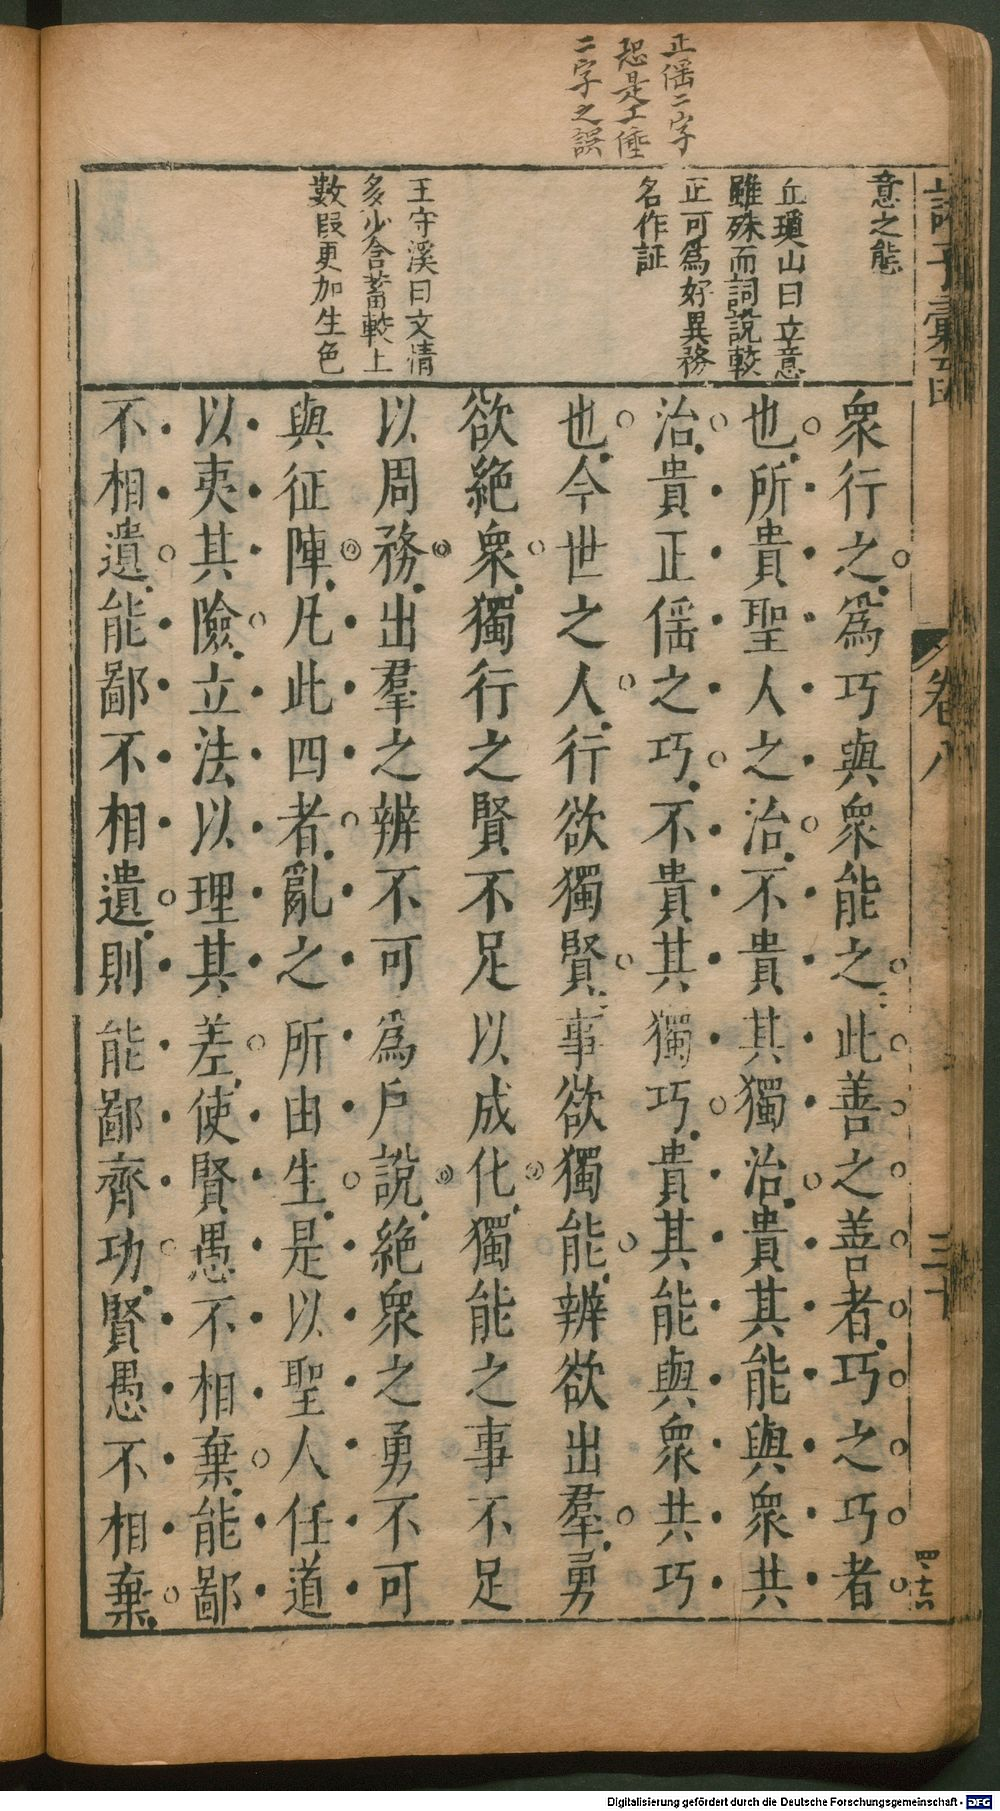 正傜二字
恐是工倕
二字之誤
意之態
丘瓊山曰立意
雖殊而詞說較
正可爲好異務
名作証
王守溪曰文情
多少含蓄較上
數叚更加生色
衆行之爲巧與衆能之此善之善者巧之巧者
也所貴聖人之治不貴其獨治貴其能與衆共
治貴正傜之巧不貴其獨巧貴其能與衆共巧
也今世之人行欲獨賢事欲獨能辨欲出羣勇
欲絕衆獨行之賢不足以成化獨能之事不足
以周務出羣之辨不可爲戶說絕衆之勇不可
與征陣凡此四者亂之所由生是以聖人任道
以夷其險立法以理其差使賢愚不相棄能鄙
不相遺能鄙不相遺則能鄙齊功賢愚不相棄
卷八
三十
Digitalisierung gefördert durch die Deutsche Forschungsgemeinschaft - DFG